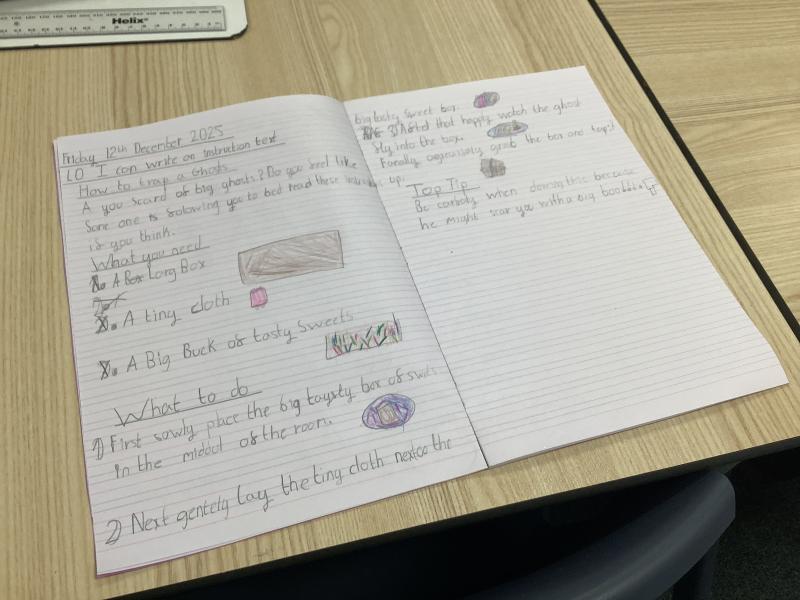 Helix
Friday 12th December 2025
LO I can write an instruction text
How to trap a Ghosts
A you scard of big ghosts? Do you feel like
Some one is folowing you to bed read these
if you think.
What you need
1. A Long Box
2. A tiny cloth
3. A Big Buck of tasty Sweets
What to do
1) First sowly place the big taysty box of swits
in the middol of the room.
2) Next gentely lay the tiny cloth nextoo the
big tasty sweet box.
3) After that happly watch the ghost
fly into the box.
Finally aggresively grab the box and tape it
up.
Top Tip
Be carfuly when dowing this because
he might scar you with a big boo!!!